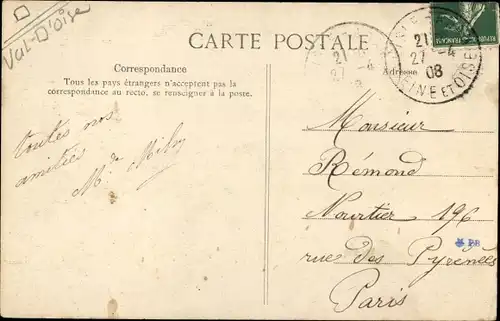 Val-D'Oise
CARTE POSTALE
Correspondance
Tous les pays étrangers n'acceptent pas la
correspondance au recto, se renseigner à la poste.
Adresse
REPUBLIQUE FRANÇAISE
21
27 -4
08
SEINE ET OISE
21
27 -4
toutes nos
amitiés
Monsieur
Rémond
Nourtier 196
rue des Pyrénées
Paris
BB